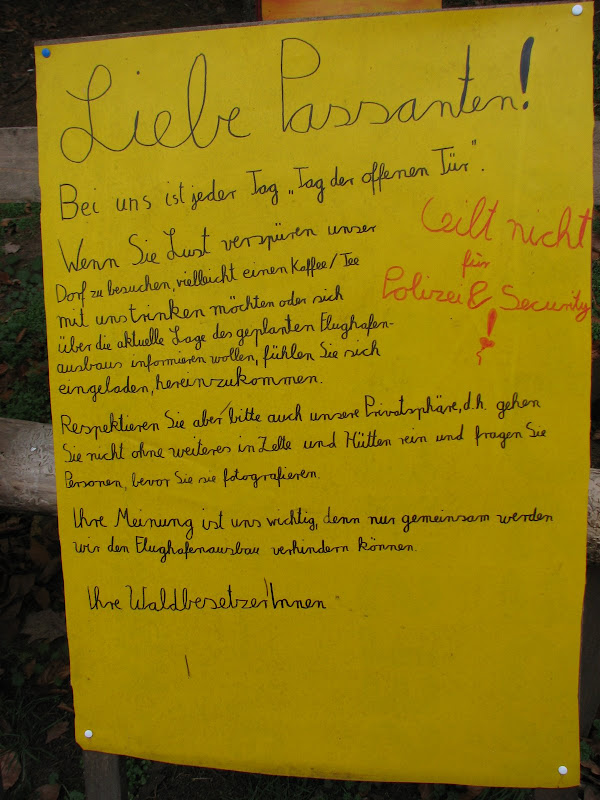 Liebe Passanten!
Bei uns ist jeder Tag „Tag der offenen Tür".
Wenn Sie Lust verspüren unser
Dorf zu besuchen, vielleicht einen Kaffee/Tee
mit uns trinken möchten oder sich
über die aktuelle Lage des geplanten Flughafen-
ausbaus informieren wollen, fühlen Sie sich
eingeladen, hereinzukommen.
Gilt nicht
für
Polizei & Security
!
Respektieren Sie aber bitte auch unsere Privatsphäre, d.h. gehen
Sie nicht ohne weiteres in Zelte und Hütten rein und fragen Sie
Personen, bevor Sie sie fotografieren.
Ihre Meinung ist uns wichtig, denn nur gemeinsam werden
wir den Flughafenausbau verhindern können.
Ihre WaldbesetzerInnen